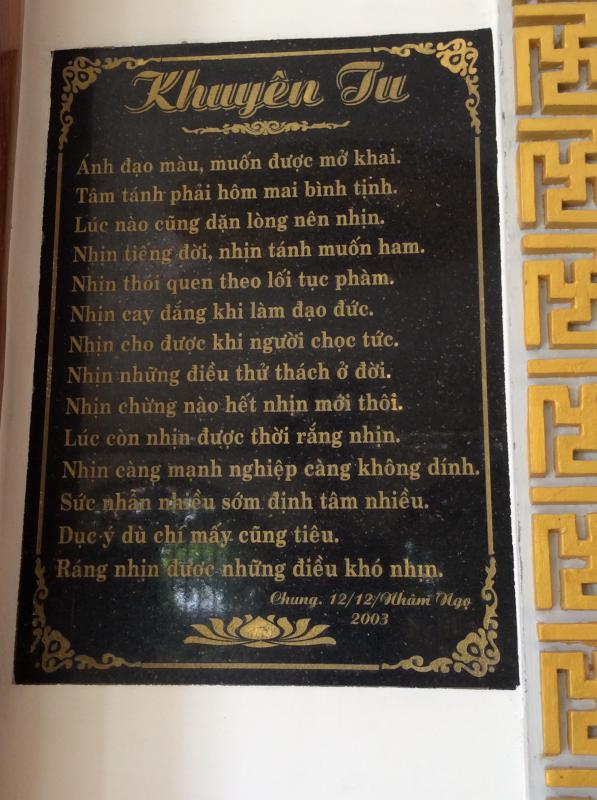 Khuyên Tu
Ánh đạo màu, muốn được mở khai.
Tâm tánh phải hôm mai bình tịnh.
Lúc nào cũng dặn lòng nên nhịn.
Nhịn tiếng đời, nhịn tánh muốn ham.
Nhịn thói quen theo lối tục phàm.
Nhịn cay đắng khi làm đạo đức.
Nhịn cho được khi người chọc tức.
Nhịn những điều thử thách ở đời.
Nhịn chừng nào hết nhịn mới thôi.
Lúc còn nhịn được thời rắng nhịn.
Nhịn càng mạnh nghiệp càng không dính.
Sức nhẫn nhiều sớm định tâm nhiều.
Dục ý dù chí mấy cũng tiêu.
Ráng nhịn được những điều khó nhịn.
Chung. 12/12/Nhâm Ngọ
2003